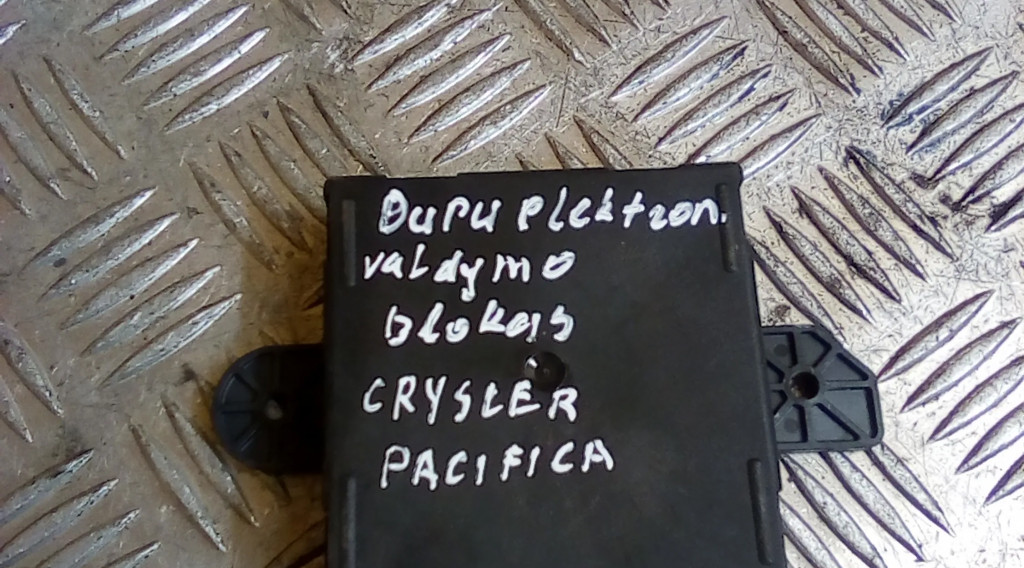 Durų elektron.
valdymo
blokas
CRYSLER
PACIFICA